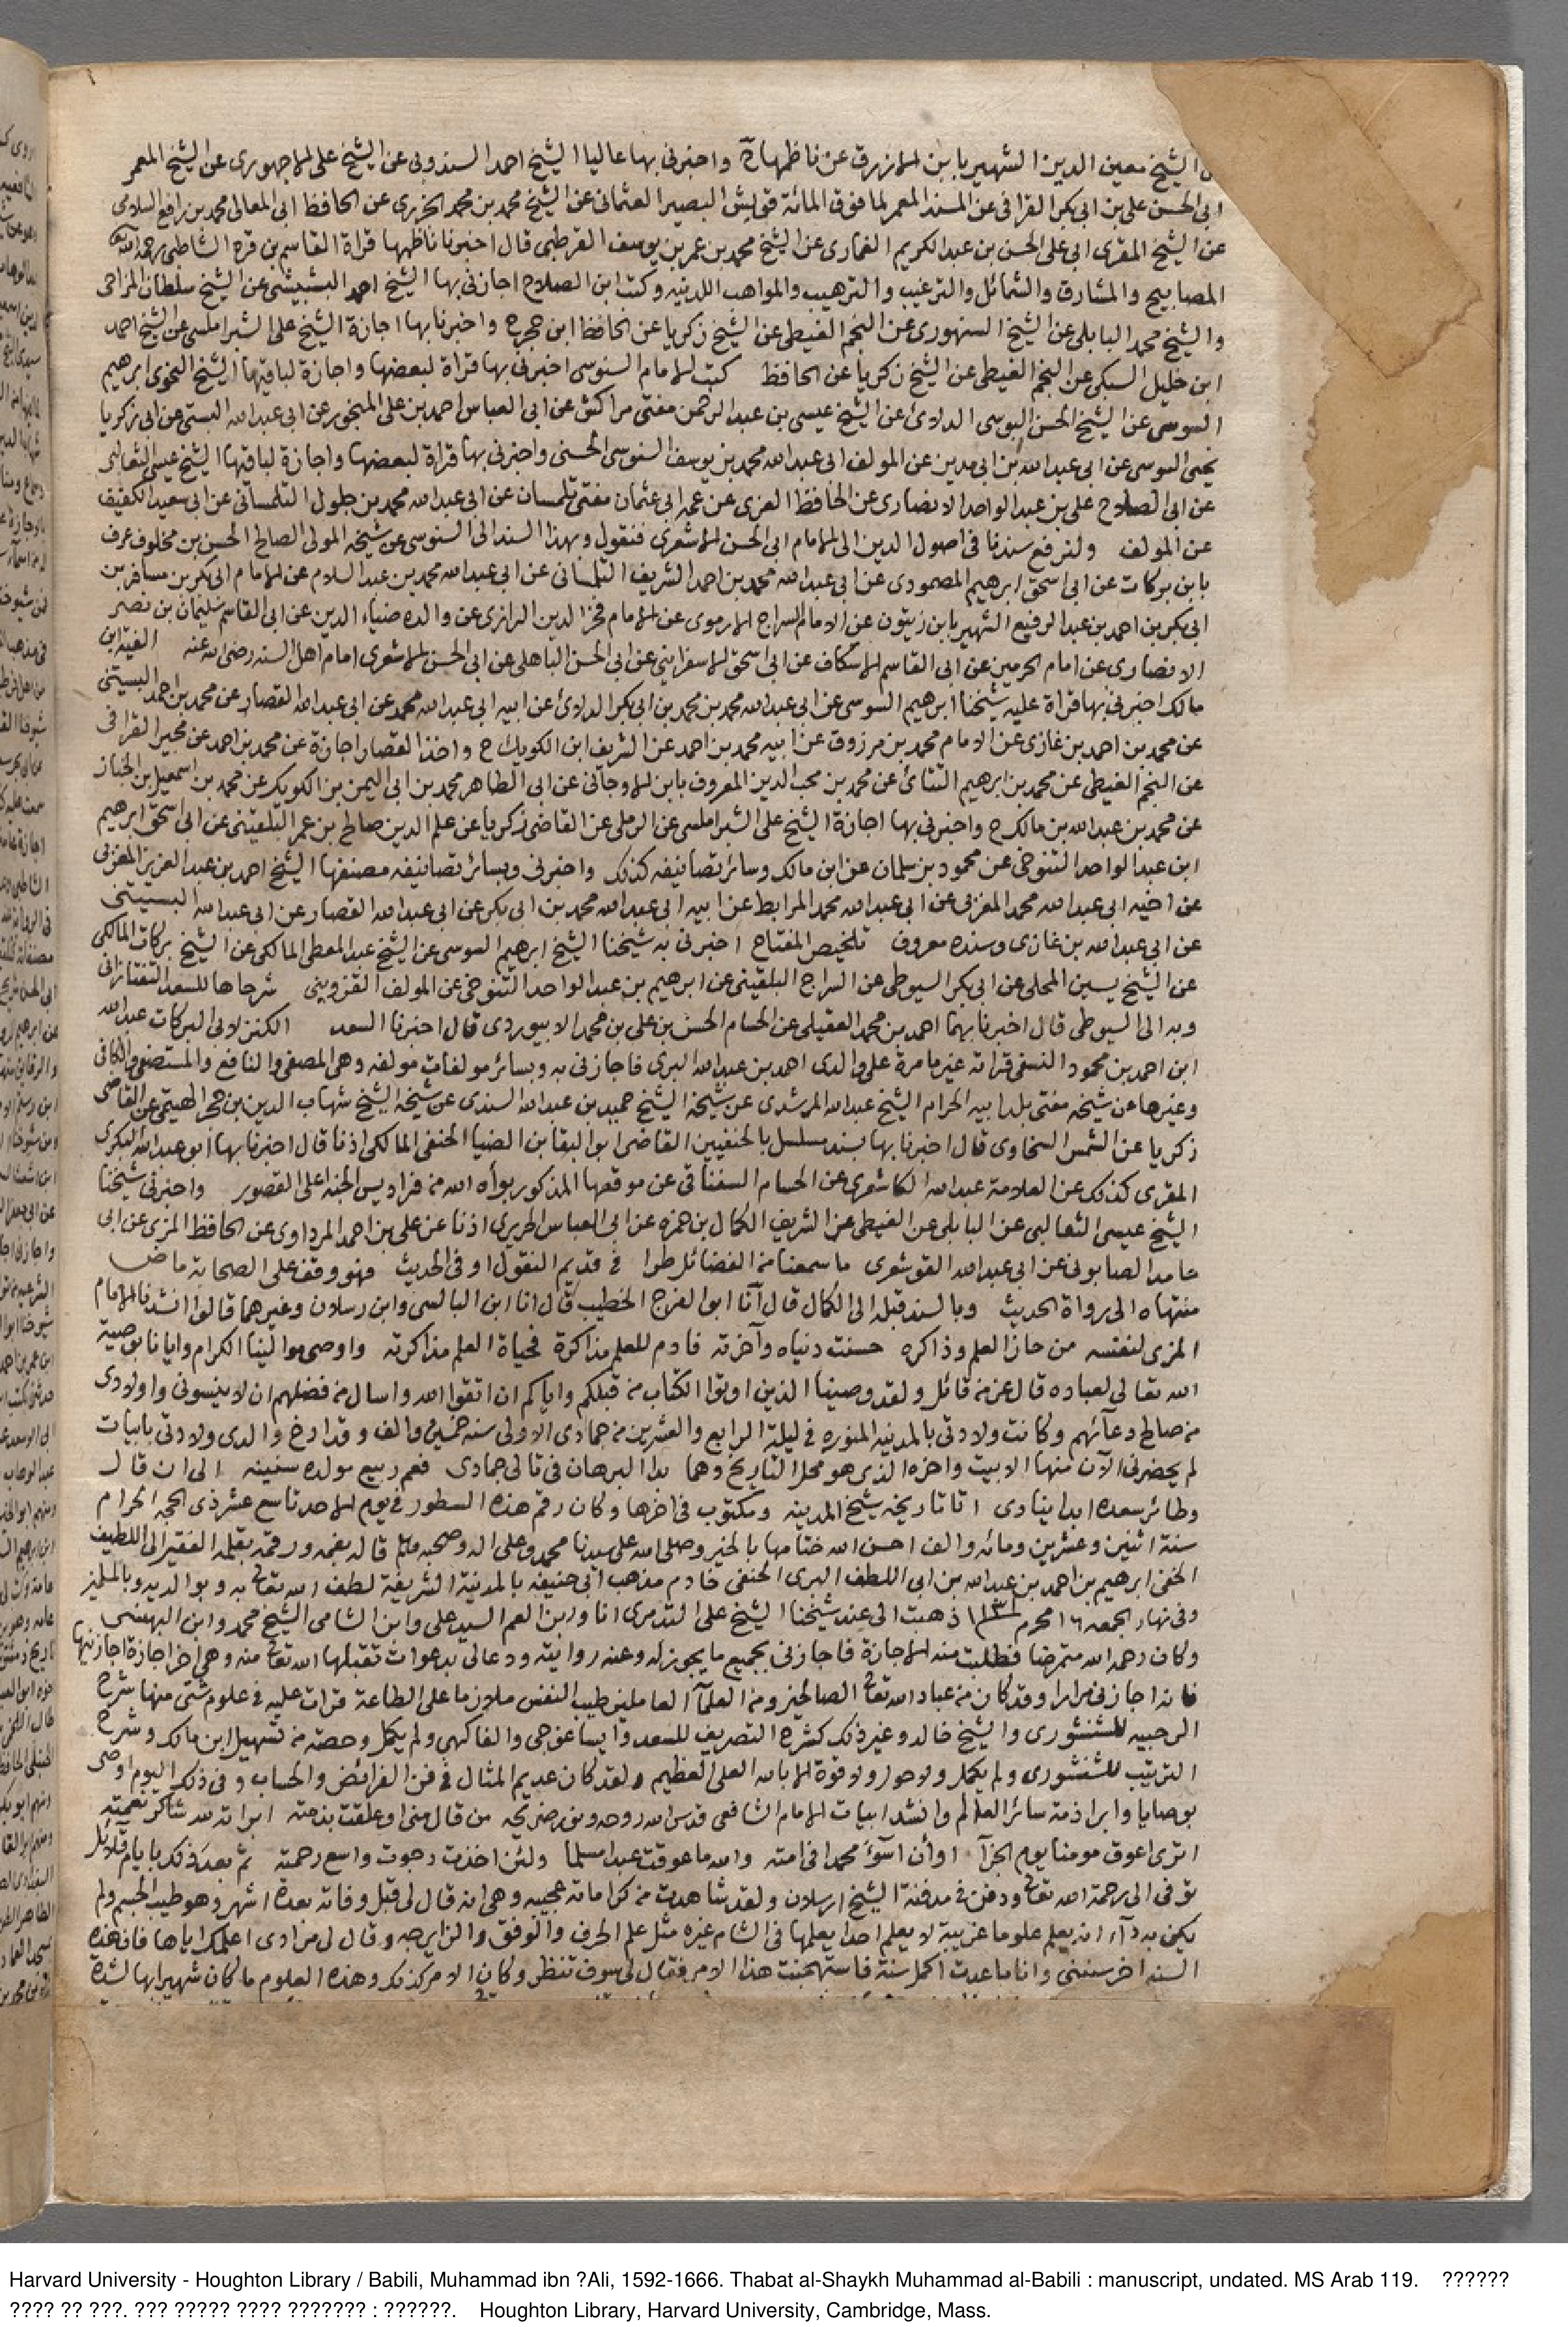 الشيخ معين الدين الشهير بابن الازرق عن ناظمها ح واخبرني بها عاليا الشيخ احمد السندوبي عن الشيخ علي الاجهوري عن الشيخ المعمر
ابي الحسن علي بن ابي بكر القرافي عن المسند المعمر لما فوق المائة قريش البصير العثماني عن الشيخ محمد بن محمد الجزري عن الحافظ ابي المعالي محمد بن رافع السلامي
عن الشيخ المقري ابي علي الحسن بن عبد الكريم الغماري عن الشيخ محمد بن عمر بن يوسف القرطبي قال اخبرنا ناظمها قراة القاسم بن فره الشاطبي رحمه الله
المصابيح والمشارق والشمائل والترغيب والترهيب والمواهب اللدنيه وكتب ابن الصلاح اجازني بها الشيخ احمد البشبيشي عن الشيخ سلطان المزاحي
والشيخ محمد البابلي عن الشيخ السنهوري عن النجم الغيطي عن الشيخ زكريا عن الحافظ ابن حجر ح واخبرنا بها اجازة الشيخ علي الشبراملسي عن الشيخ احمد
ابن خليل السبكي عن النجم الغيطي عن الشيخ زكريا عن الحافظ كتب الامام السنوسي اخبرني بها قراة لبعضها واجازة لباقيها الشيخ النحوي ابرهيم
السوسي عن الشيخ الحسن اليوسي الدادي عن الشيخ عيسى بن عبد الرحمن مفتي مراكش عن ابي العباس احمد بن علي المنجور عن ابي عبد الله البستي عن ابي زكريا
يحيى السوسي عن ابي عبد الله بن ابي مدين عن المولف ابي عبد الله محمد بن يوسف السنوسي الحسني واخبرني بها قراة لبعضها واجازة لباقيها الشيخ عيسى الثعالبي
عن ابي الصلاح علي بن عبد الواحد الانصاري عن الحافظ المقري عن عمه ابي عثمان مفتي تلمسان عن ابي عبد الله محمد بن جلول التلمساني عن ابي سعيد الكفيف
عن المولف ولنرفع سندنا في اصول الدين الى الامام ابي الحسن الاشعري فنقول وبهذا السند الى السنوسي عن شيخه المولى الصالح الحسن بن مخلوف عرف
بابن بركات عن ابي اسحق ابرهيم المصمودي عن ابي عبد الله محمد بن احمد الشريف التلمساني عن ابي عبد الله محمد بن عبد السلام عن الامام ابي بكر بن مسافر بن
ابي بكر بن احمد بن عبد الرفيع الشهير بابن زيتون عن الامام السراج الارموي عن الامام فخر الدين الرازي عن والده ضياء الدين عن ابي القاسم سليمان بن نصر
الانصاري عن امام الحرمين عن ابي القاسم الاسكاف عن ابي اسحق الاسفرايني عن ابي الحسن الباهلي عن ابي الحسن الاشعري امام اهل السنه رضي الله عنه الفية ابن
مالك اخبرني بها قراة عليه شيخنا ابرهيم السوسي عن ابي عبد الله محمد بن محمد بن ابي بكر الدادي عن ابيه ابي عبد الله محمد عن ابي عبد الله القصار عن محمد بن احمد البستيي
عن محمد بن احمد بن غازي عن الامام محمد بن مرزوق عن ابيه محمد بن احمد عن الشريف ابن الكويك ح واخذ القصار اجازة عن محمد بن احمد عن القرافي
عن النجم الغيطي عن محمد بن ابرهيم التتائي عن محمد بن محب الدين المعروف بابن الاوجاقي عن ابي الطاهر محمد بن ابي اليمن بن الكويك عن محمد بن اسمعيل بن الخباز
عن محمد بن عبد الله بن مالك ح واخبرني بها اجازة الشيخ علي الشبراملسي عن الرملي عن القاضي زكريا عن علم الدين صالح بن عمر البلقيني عن ابي اسحق ابرهيم
ابن عبد الواحد التنوخي عن محمود بن سلمان عن ابن مالك وسائر تصانيفه كذلك واخبرني وبسائر تصانيفه مصنفها الشيخ احمد بن عبد العزيز المغربي
عن اخيه ابي عبد الله محمد المغربي عن ابي عبد الله محمد المرابط عن ابيه ابي عبد الله محمد بن ابي بكر عن ابي عبد الله القصار عن ابي عبد الله البستيني
عن ابي عبد الله بن غازي وسنده معروف تلخيص المفتاح اخبرني به شيخنا الشيخ ابرهيم السوسي عن الشيخ عبد المعطي المالكي عن الشيخ بركات المالكي
عن الشيخ يسين المحلي عن ابي بكر السيوطي عن السراج البلقيني عن ابرهيم بن عبد الواحد التنوخي عن المولف القزويني شرحاها للسعد التفتازاني
وبه الى السيوطي قال اخبرنا بهما احمد بن محمد العقيلي عن الحسام الحسن بن علي بن محمد الابيوردي قال اخبرنا السعد الكنز لابي البركات عبد الله
ابن احمد بن محمود النسفي قراته غير ما مرة على والدي احمد بن عبد الله البري فاجازني به وبسائر مولفات مولفه وهي المصفى والنافع والمستصفى والكافي
وغيرها عن شيخه مفتي بلد ابيه الحرام الشيخ عبد الله المرشدي عن شيخه الشيخ حميد بن عبد الله السندي عن شيخه الشيخ شهاب الدين بن حجر الهيتمي عن القاضي
زكريا عن الشمس السخاوي قال اخبرنا بها بسند مسلسل بالحنفيين القاضي ابو البقا بن الضيا الحنفي المالكي اذنا قال اخبرنا بها ابو عبد الله البكري
المقري كذلك عن العلامة عبد الله الكاشعري عن الحسام السغناقي عن موقعها المذكور بوأه الله من فراديس الجنه اعلى القصور واخبرني شيخنا
الشيخ عيسى الثعالبي عن البابلي عن الغيطي عن الشريف الكمال بن حمزه عن ابي العباس الحريري اذنا عن علي بن احمد المرداوي عن الحافظ المزي عن ابي
حامد الصابوني عن ابي عبد الله القوشعري ما سمعنا من الفضائل طرا في قديم النقول او في الحديث فهو وقف على الصحابة ماض
منتهاه الى رواة الحديث وبالسند قبله الى الكمال قال آنا ابو الفرج الخطيب قال انا ابن البالسي وابن رسلان وغيرهما قالوا انشدنا الامام
المزي لنفسه من حاز العلم وذاكره حسنت دنياه وآخرته فادم للعلم مذاكرة فحياة العلم مذاكرته واوصي موالينا الكرام وايانا بوصية
الله تعالى لعباده قال عز من قائل ولقد وصينا الذين اوتوا الكتاب من قبلكم واياكم ان اتقوا الله واسال من فضلهم ان لا ينسوني واولادي
من صالح دعآئهم وكانت ولادتي بالمدينه المنوره في ليلة الرابع والعشرين من جمادى الاولى سنه خمسين والف وقد ارخ والدي ولادتي بابيات
لم يحضرني الآن منها الا بيت واخره الذي هو محل التاريخ وهما بدا البرهان في تالي جمادى فعم ربيع مولده سنينه الى ان قال
وطائر سعده ابدا ينادي اتا تاريخه شيخ المدينه ومكتوب في اخرها وكان رقم هذه السطور في يوم الاحد تاسع عشر ذي الحجه الحرام
سنة اثنين وعشرين ومائه والف احسن الله ختامها بالخير وصلى الله على سيدنا محمد وعلى اله وصحبه وسلم قاله بفمه ورقمه بقلمه الفقير الى اللطيف
الخفي ابرهيم بن احمد بن عبد الله بن ابي اللطف البري الحنفي خادم مذهب ابي حنيفه بالمدنية الشريفة لطف الله تعالى به وبوالديه وبالمسلمين
وفي نهار الجمعه ١٦ محرم ١١٣١ ذهبت الى عند شيخنا الشيخ علي التدمري انا وابن العم السيد علي وابن الشامي الشيخ محمد وابن البهنسي
وكان رحمه الله متمرضا فطلبت منه الاجازة فاجازني بجميع ما يجوز له وعنه روايته ودعا لي بدعوات تقبلها الله تعالى منه وهي اخر اجازة اجازنيها
فانه اجازني مرارا وقد كان من عباد الله تعالى الصالحين ومن العلمآ العاملين طيب النفس ملازما على الطاعة قرات عليه في علوم شتى منها شرح
الرحبيه للشنشوري والشيخ خالد وغير ذلك كشرح التصريف للسعد وايساغوجي والفاكهي ولم يكمل وحصته من تسهيل ابن مالك وشرح
الترتيب للشنشوري ولم يكمل ولا حول ولا قوة الا بالله العلي العظيم ولقد كان عديم المثال في فن الفرائض والحساب وفي ذلك اليوم اوصى
بوصايا وابرا ذمة سائر العالم وانشد ابيات الامام الشافعي قدس الله روحه ونور ضريحه من قال مني او علقت بذمته ابراته لله شاكر نعمته
اترى اعوق مومنا يوم الجزآ اوأن اسوَء محمدا في امته والله ما عوقت عبدا مسلما ولئن اخذت رجوت واسع رحمته ثم بعد ذلك بايام قلائل
توفي الى رحمة الله تعالى ودفن في مدفنة الشيخ ارسلان ولقد شاهدت من كراماته عجيبه وهي انه قال لي قبل وفاته بعدة اشهر وهو طيب الجسم ولم
يكن به دآء انه يعلم علوما غريبة لا يعلم احدا يعلمها في الشام غيره مثل علم الحرف والوفق والزايرجه وقال لي مرادي اعلمك اياها فان هذه
السنه اخر سنيني وانا ما عدت اكمل سنة فاستهجنت هذا الامر فقال لي سوف تنظر وكان الامر كذلك وهذه العلوم ما كان شهيرا بها لشدة
Harvard University - Houghton Library / Babili, Muhammad ibn ?Ali, 1592-1666. Thabat al-Shaykh Muhammad al-Babili : manuscript, undated. MS Arab 119. ??????
???? ?? ???. ??? ????? ???? ??????? : ??????. Houghton Library, Harvard University, Cambridge, Mass.